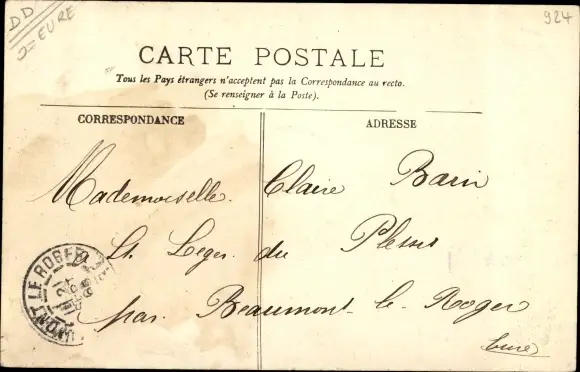 DD
EURE
924
CARTE POSTALE
Tous les Pays étrangers n'acceptent pas la Correspondance au recto.
(Se renseigner à la Poste).
CORRESPONDANCE
ADRESSE
Mademoiselle Claire Barin
St. Leger du Plessis
par Beaumont-le-Roger
Eure
MONT LE ROGER